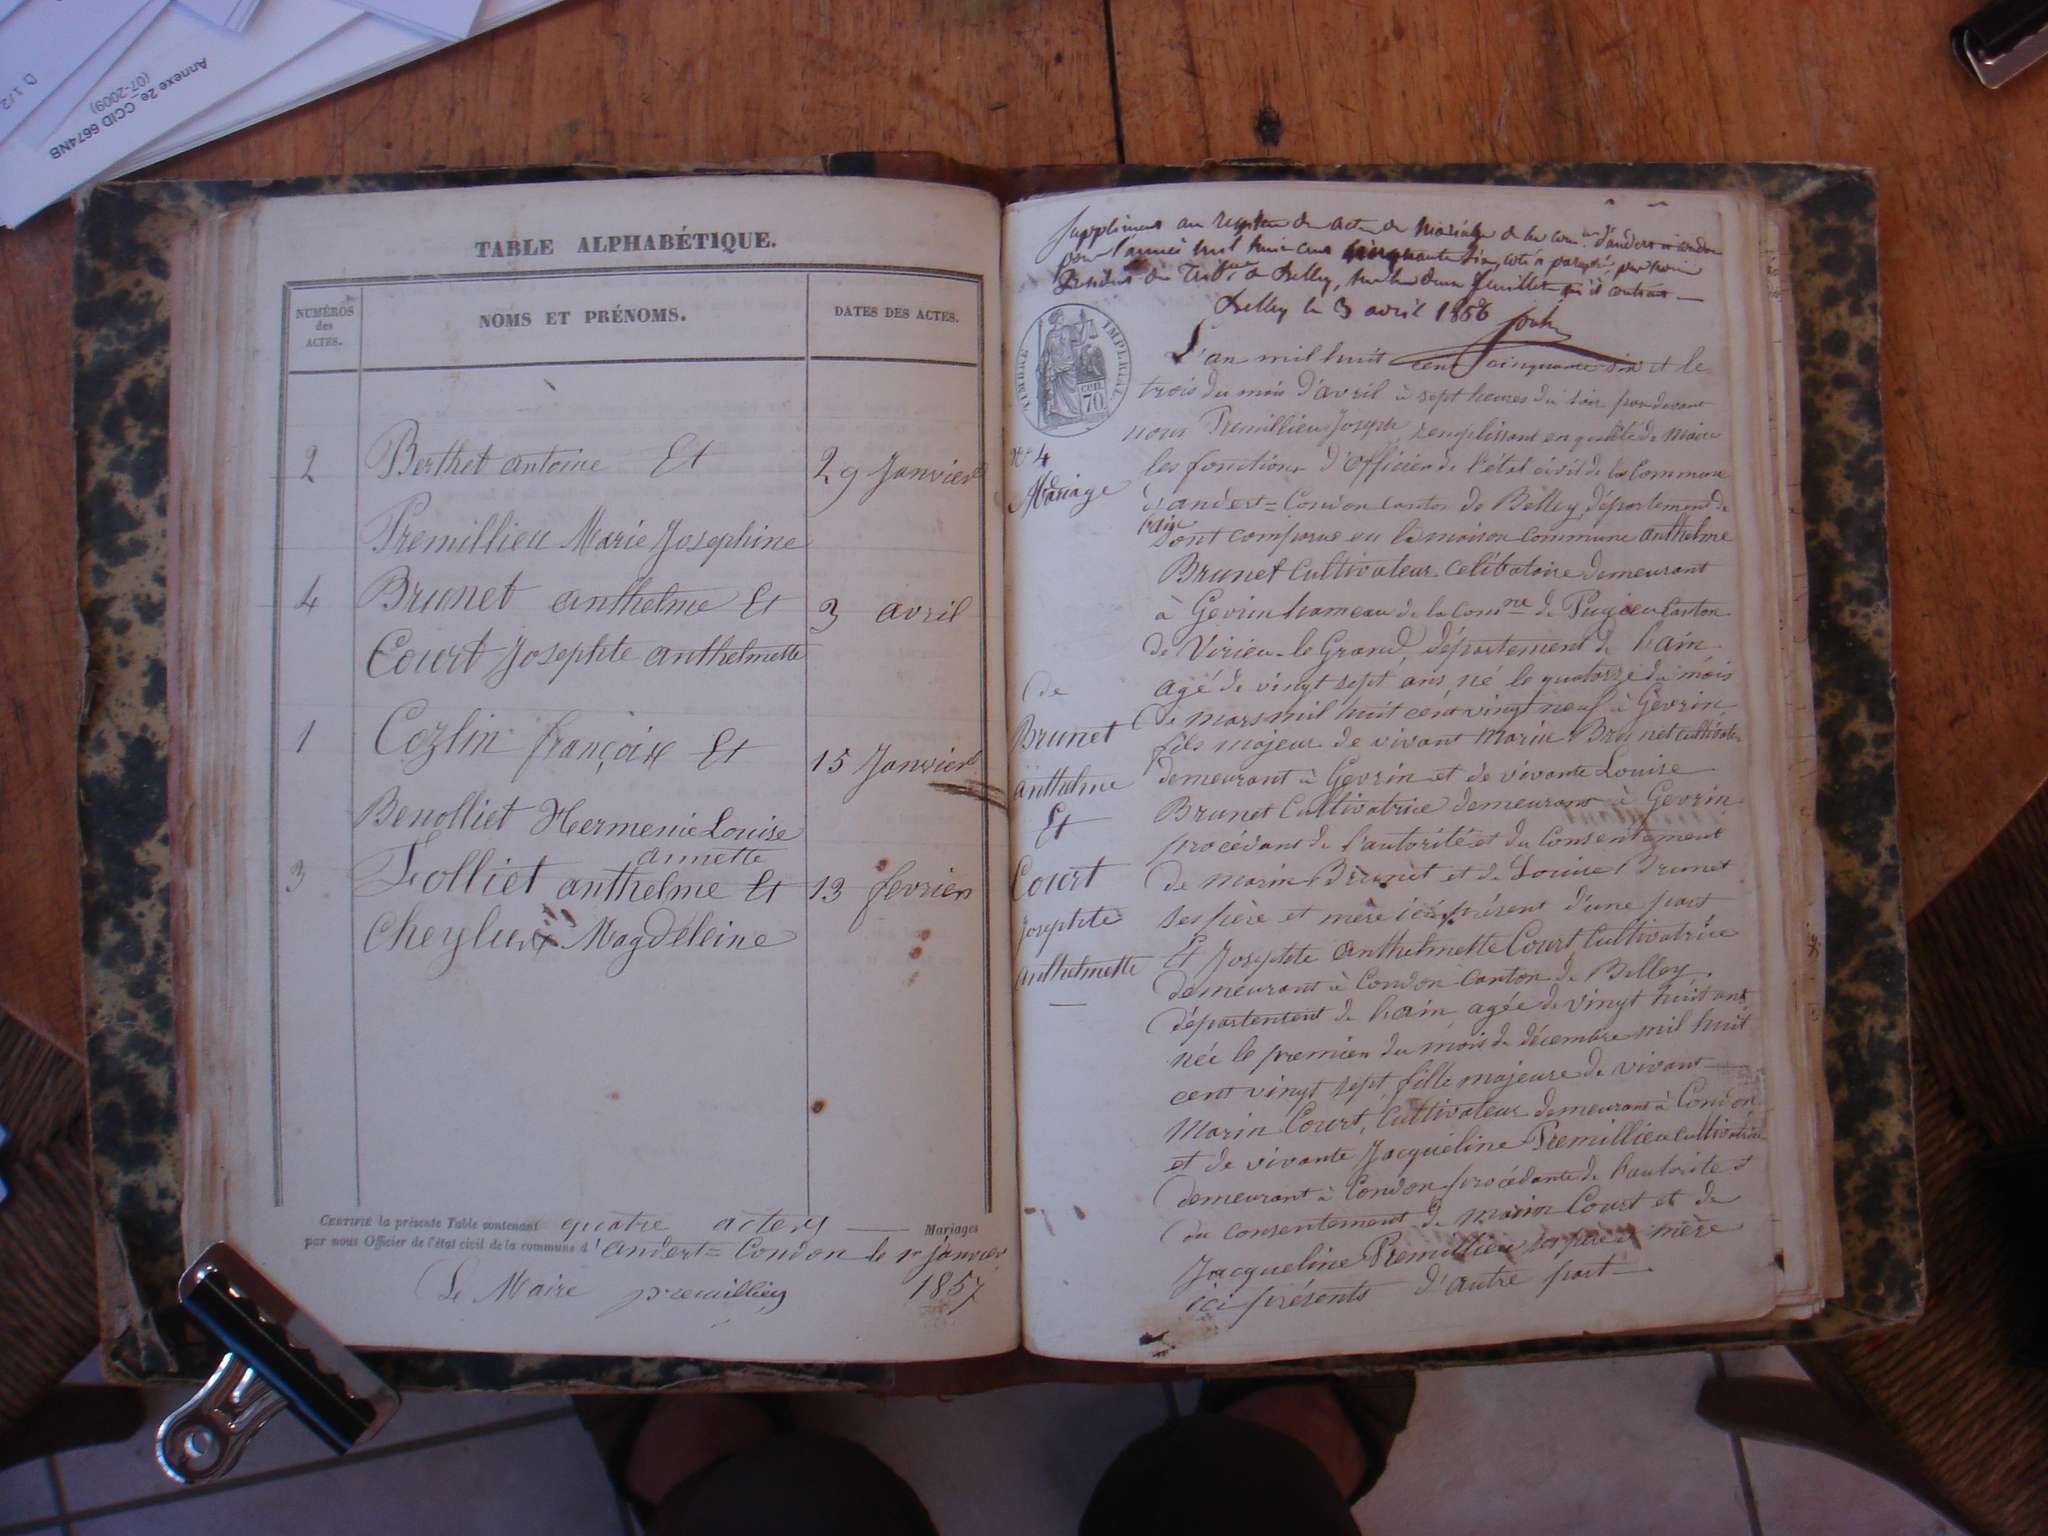 Annexe 2e CCID 6674NB
(07-2009)
TABLE ALPHABÉTIQUE.
NUMÉROS
des
ACTES.
NOMS ET PRÉNOMS.
DATES DES ACTES.
2 Berthet antoine Et 29 Janvier
Premillieu Marie Josephine
4 Brunet anthelme Et 3 avril
Court Josephte anthelmette
1 Cozlin françois Et 15 Janvier
Benolliet Hermenie Louise
annette
3 Folliet anthelme Et 13 fevrier
Cheylux Magdéleine
CERTIFIÉ la présente Table contenant quatre actes Mariages
par nous Officier de l'état civil de la commune d'andert=Condon le 1r Janvier
1857
Le Maire premillieu
Supplement au registre de acte de Mariage de la comne d'andert et condon
pour l'année mil huit cent cinquante six, coté et paraphé, par nous
Président du Tribal de Belley, sur les deux feuillets qu'il contient
Belley le 3 avril 1856
TIMBRE IMPERIAL
CEN.
70
L'an mil huit cent cinquante six et le
trois du mois d'avril à sept heures du soir pardevant
nous Premillieu Joseph remplissant en qualité de maire
les fonctions d'officier de l'état civil de la Commune
d'andert=Condon canton de Belley, département de
l'ain
sont comparus en la maison commune anthelme
Brunet Cultivateur celibataire demeurant
à Gevrin hameau de la comne de Pugieu Canton
de Virieu-le-Grand, département de l'ain
agé de vingt sept ans, né le quatorze du mois
de mars mil huit cent vingt neuf à Gevrin
fils majeur de vivant Marin Brunet cultivateur
demeurant à Gevrin et de vivante Louise
Brunet Cultivatrice demeurant à Gevrin
procédant de l'autorité et du Consentement
de Marin Brunet et de Louise Brunet
ses père et mère ici présent d'une part
Et Josephte anthelmette Court Cultivatrice
demeurant à Condon canton de Belley,
département de l'ain, agée de vingt huit ans
née le premier du mois de décembre mil huit
cent vingt sept, fille majeure de vivant
Marin Court, Cultivateur demeurant à Condon
et de vivante Jacqueline Premillieu cultivatrice
demeurant à Condon procédante de l'autorité et
du consentement de Marin Court et de
Jacqueline Premillieu ses père et mère
ici présents d'autre part
No 4
Mariage
de
Brunet
anthelme
Et
Court
Josephte
anthelmette